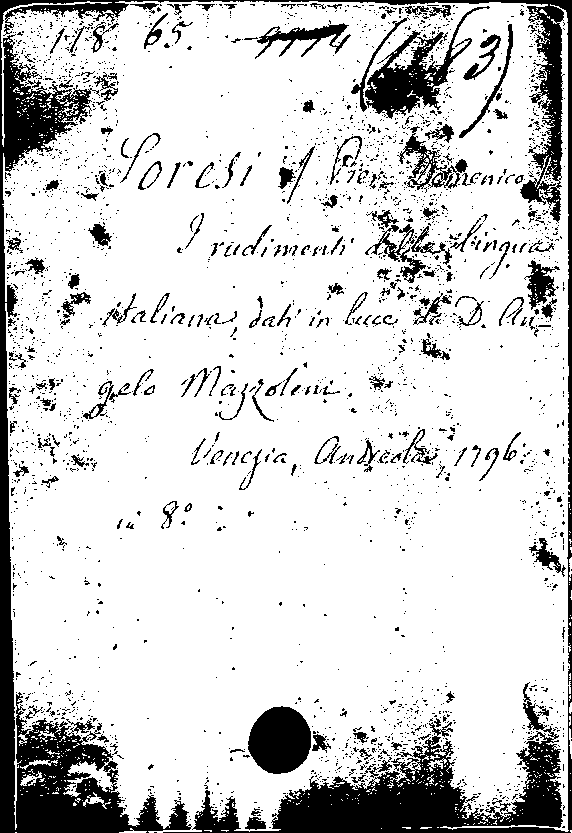 118. 65.
Soresi / Pier Domenico /
I rudimenti della lingua
italiana, dati in luce da D. An-
gelo Mazzoleni.
Venezia, Andreola, 1796.
in 8°